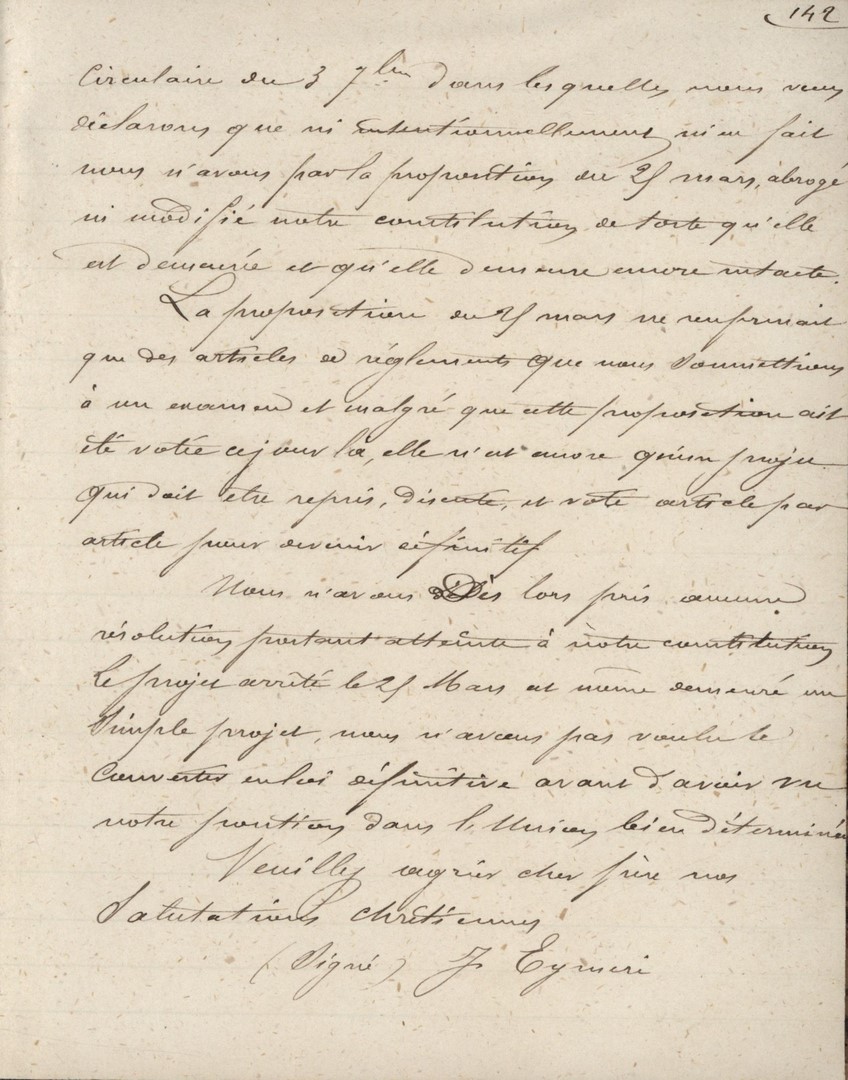 142
Circulaire du 3 7bre dans lesquelles nous vous
déclarons que ni intentionnellement, ni en fait
nous n'avons par la proposition du 25 mars, abrogé
ni modifié notre constitution de sorte qu'elle
est demeurée et qu'elle demeure encore intacte.
La proposition du 25 mars ne renfermait
que des articles de réglements que nous soumettions
à un examen et malgré que cette proposition ait
été votée ce jour là, elle n'est encore qu'un projet
qui doit être repris, discuté, et voté article par
article pour devenir définitif
Nous n'avons Dès lors pris aucune
résolution portant atteinte à notre constitution
Le projet arrêté le 25 Mars est même demeuré un
Simple projet, nous n'avons pas voulu le
convertir en loi définitive avant d'avoir vu
notre position dans l'Union bien déterminée
Veuillez agréer cher frère nos
Salutations chrétiennes
(Signé) J Eymeri